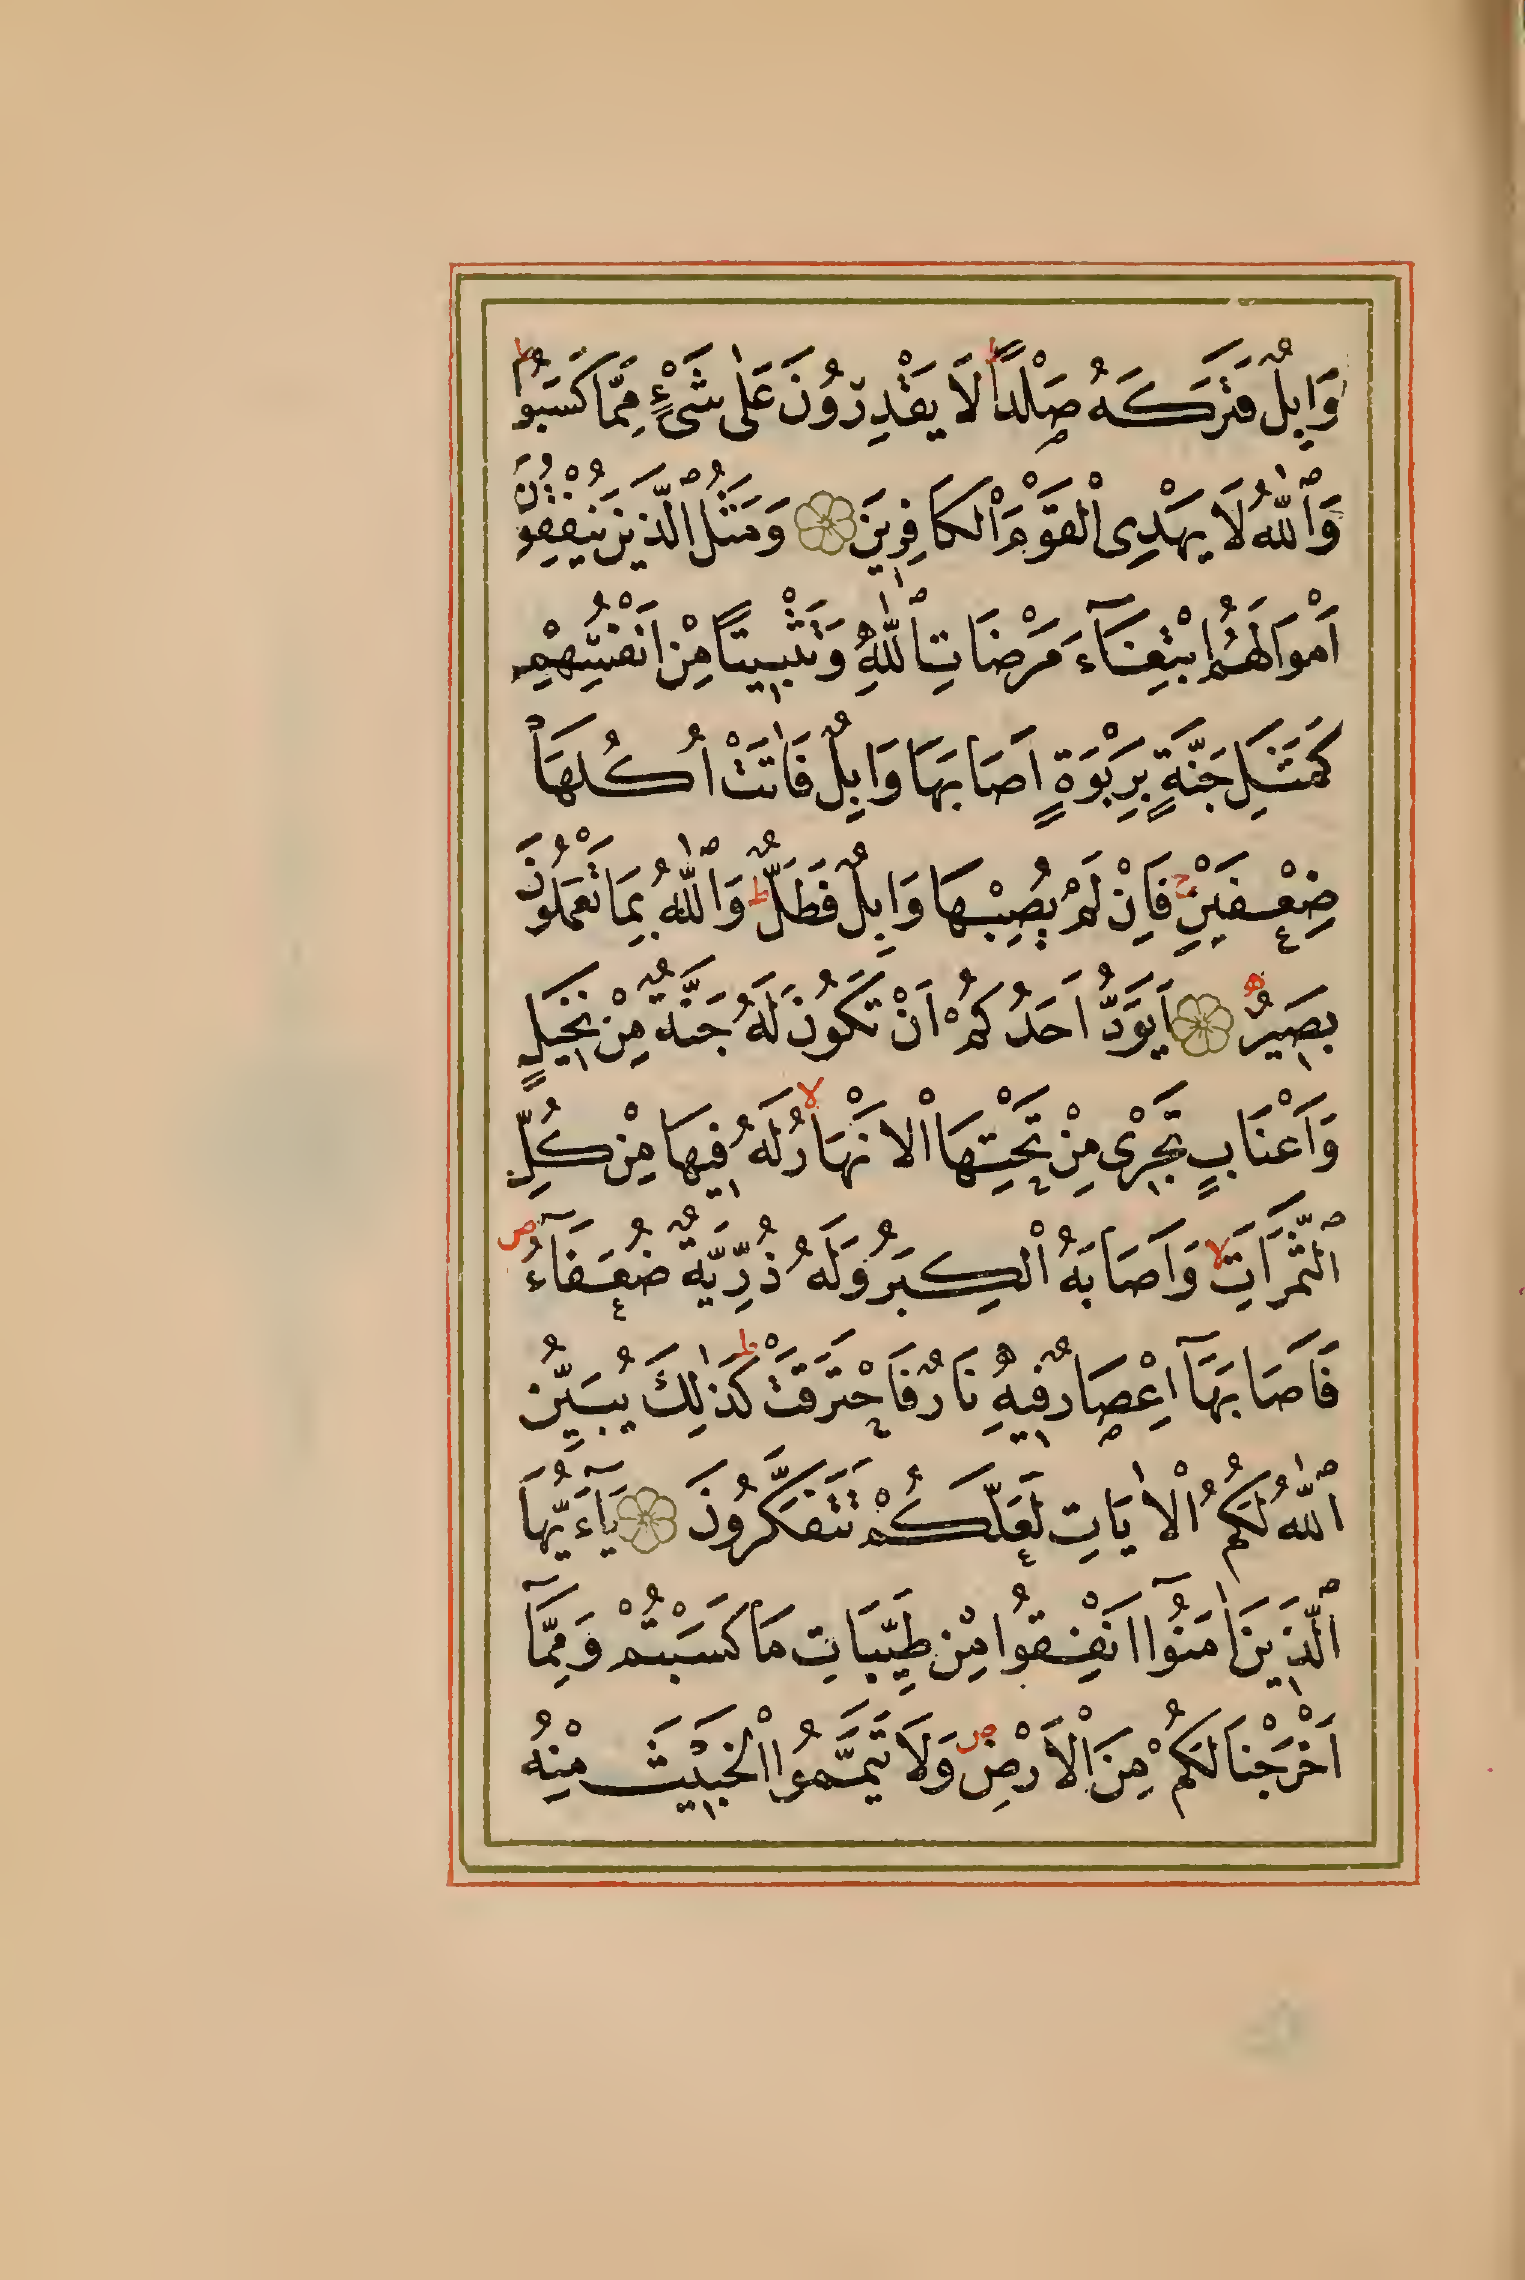 وَابِلٌ فَتَرَكَهُ صَلْدًا ۜ لَا يَقْدِرُونَ عَلٰى شَىْءٍ مِمَّا كَسَبُوا ط
وَٱللّٰهُ لَا يَهْدِى ٱلْقَوْمَ ٱلْكَافِرِينَ ۝ وَمَثَلُ ٱلَّذِينَ يُنْفِقُونَ
اَمْوَالَهُمُ ابْتِغَآءَ مَرْضَاتِ ٱللّٰهِ وَتَثْبِيتًا مِنْ اَنْفُسِهِمْ
كَمَثَلِ جَنَّةٍ بِرَبْوَةٍ اَصَابَهَا وَابِلٌ فَاٰتَتْ اُكُلَهَا
ضِعْفَيْنِ ج فَاِنْ لَمْ يُصِبْهَا وَابِلٌ فَطَلٌّ ط وَٱللّٰهُ بِمَا تَعْمَلُونَ
بَصِيرٌ ۝ اَيَوَدُّ اَحَدُكُمْ اَنْ تَكُونَ لَهُ جَنَّةٌ مِنْ نَخِيلٍ
وَاَعْنَابٍ تَجْرِى مِنْ تَحْتِهَا ٱلْاَنْهَارُ لا لَهُ فِيهَا مِنْ كُلِّ
ٱلثَّمَرَاتِ لا وَاَصَابَهُ ٱلْكِبَرُ وَلَهُ ذُرِّيَّةٌ ضُعَفَآءُ ص
فَاَصَابَهَآ اِعْصَارٌ فِيهِ نَارٌ فَاحْتَرَقَتْ ط كَذٰلِكَ يُبَيِّنُ
ٱللّٰهُ لَكُمُ ٱلْاٰيَاتِ لَعَلَّكُمْ تَتَفَكَّرُونَ ۝ يَآءَيُّهَا
ٱلَّذِينَ اٰمَنُوٓا اَنْفِقُوا مِنْ طَيِّبَاتِ مَا كَسَبْتُمْ وَمِمَّآ
اَخْرَجْنَا لَكُمْ مِنَ ٱلْاَرْضِ ص وَلَا تَيَمَّمُوا ٱلْخَبِيثَ مِنْهُ